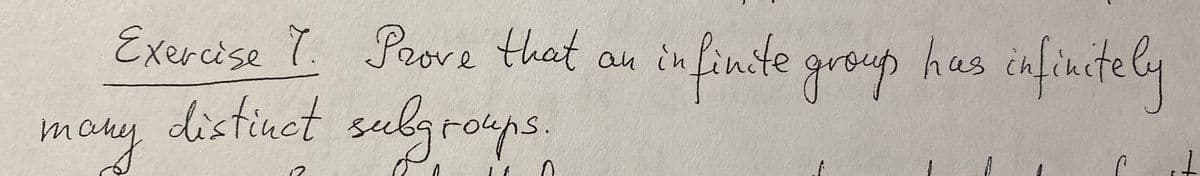 Exercise 7. Prove that an infinite group has infinitely
many distinct subgroups.